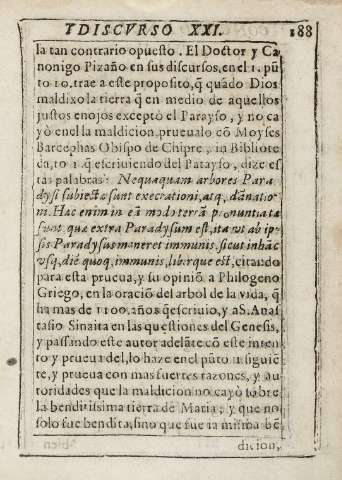 YDISCVRSO XXI. 188
la tan contrario opuesto. El Doctor y Ca
nonigo Pizaño en sus discursos, en el 1. pũ
to 10, trae a este proposito, q̃ quãdo Dios
maldixo la tierra q̃ en medio de aquellos
justos enojos exceptó el Parayso, y no ca
yó en el la maldicion, prueualo cõ Moyses
Barcephas Obispo de Chipre, in Bibliote
da, to 1. q̃ escriuiendo del Patayso, dize es
tas palabras: Nequaquam arbores Para
dysi subiectæ sunt execrationi, atq, dãnatio
ni. Hac enim in eã modo terrã pronuntiata
sunt quæ extra Paradysum est, ita vt ab ip
sis Paradysus maneret immunis, sicut in hãc
vsq, diẽ quoq, immunis, liberque est, citando
para esta prueua, y su opiniõ a Philogeno
Griego, en la oraciõ del arbol de la vida, q̃
ha mas de 1100. años q̃ escriuio, y a S. Anas
tasio Sinaita en las questiones del Genesis,
y passando este autor adelãte cõ este inten
to y prueua del, lo haze en el pũto 11 siguiẽ
te, y prueua con mas fuertes razones, y au
toridades que la maldicion no cayó sobre
la benditissima tierra de Maria; y que no
solo fue bendita, sino que fue la misma bẽ
dicion,